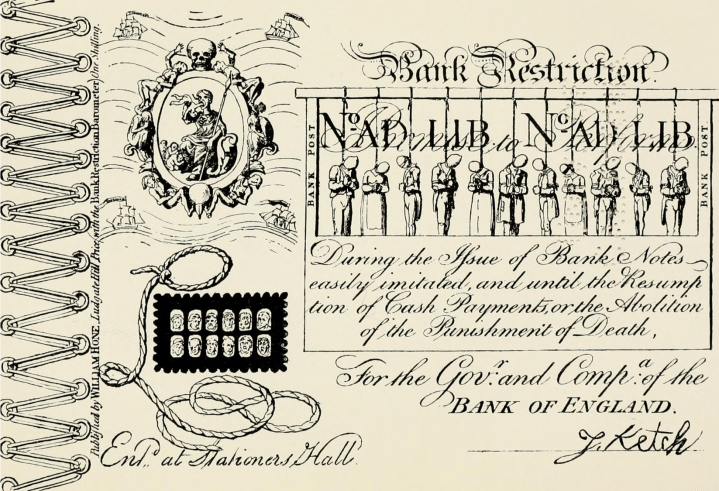 Bank Restriction
BANK POST
No. AD LIB No. AD LIB
BANK POST
During the Issue of Bank Notes
easily imitated, and until the Resump
tion of Cash Payments, or the Abolition
of the Punishment of Death,
For the Govr. and Compa. of the
BANK OF ENGLAND.
J. Ketch
Entd. at Stationers Hall.
Published by WILLIAM HONE Ludgate Hill Price with the Bank Restriction Barometer One Shilling.